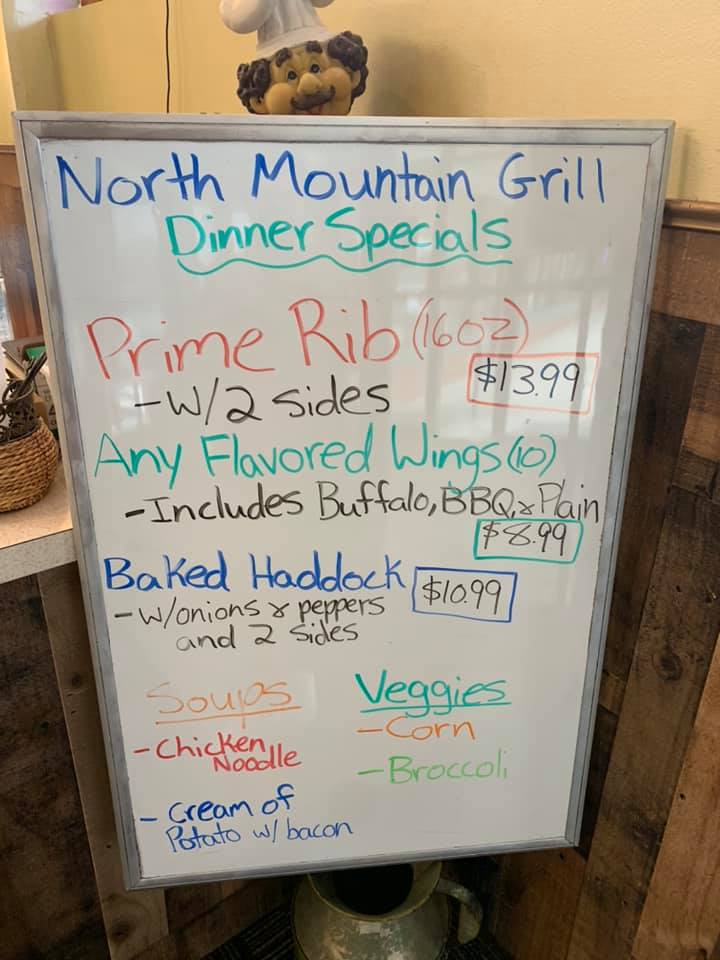 North Mountain Grill
Dinner Specials
Prime Rib (16oz)
-W/2 sides
$13.99
Any Flavored Wings (10)
-Includes Buffalo, BBQ, & Plain
$8.99
Baked Haddock
$10.99
-w/onions & peppers
and 2 sides
Soups
-Chicken
Noodle
-Cream of
Potato w/bacon
Veggies
-Corn
-Broccoli